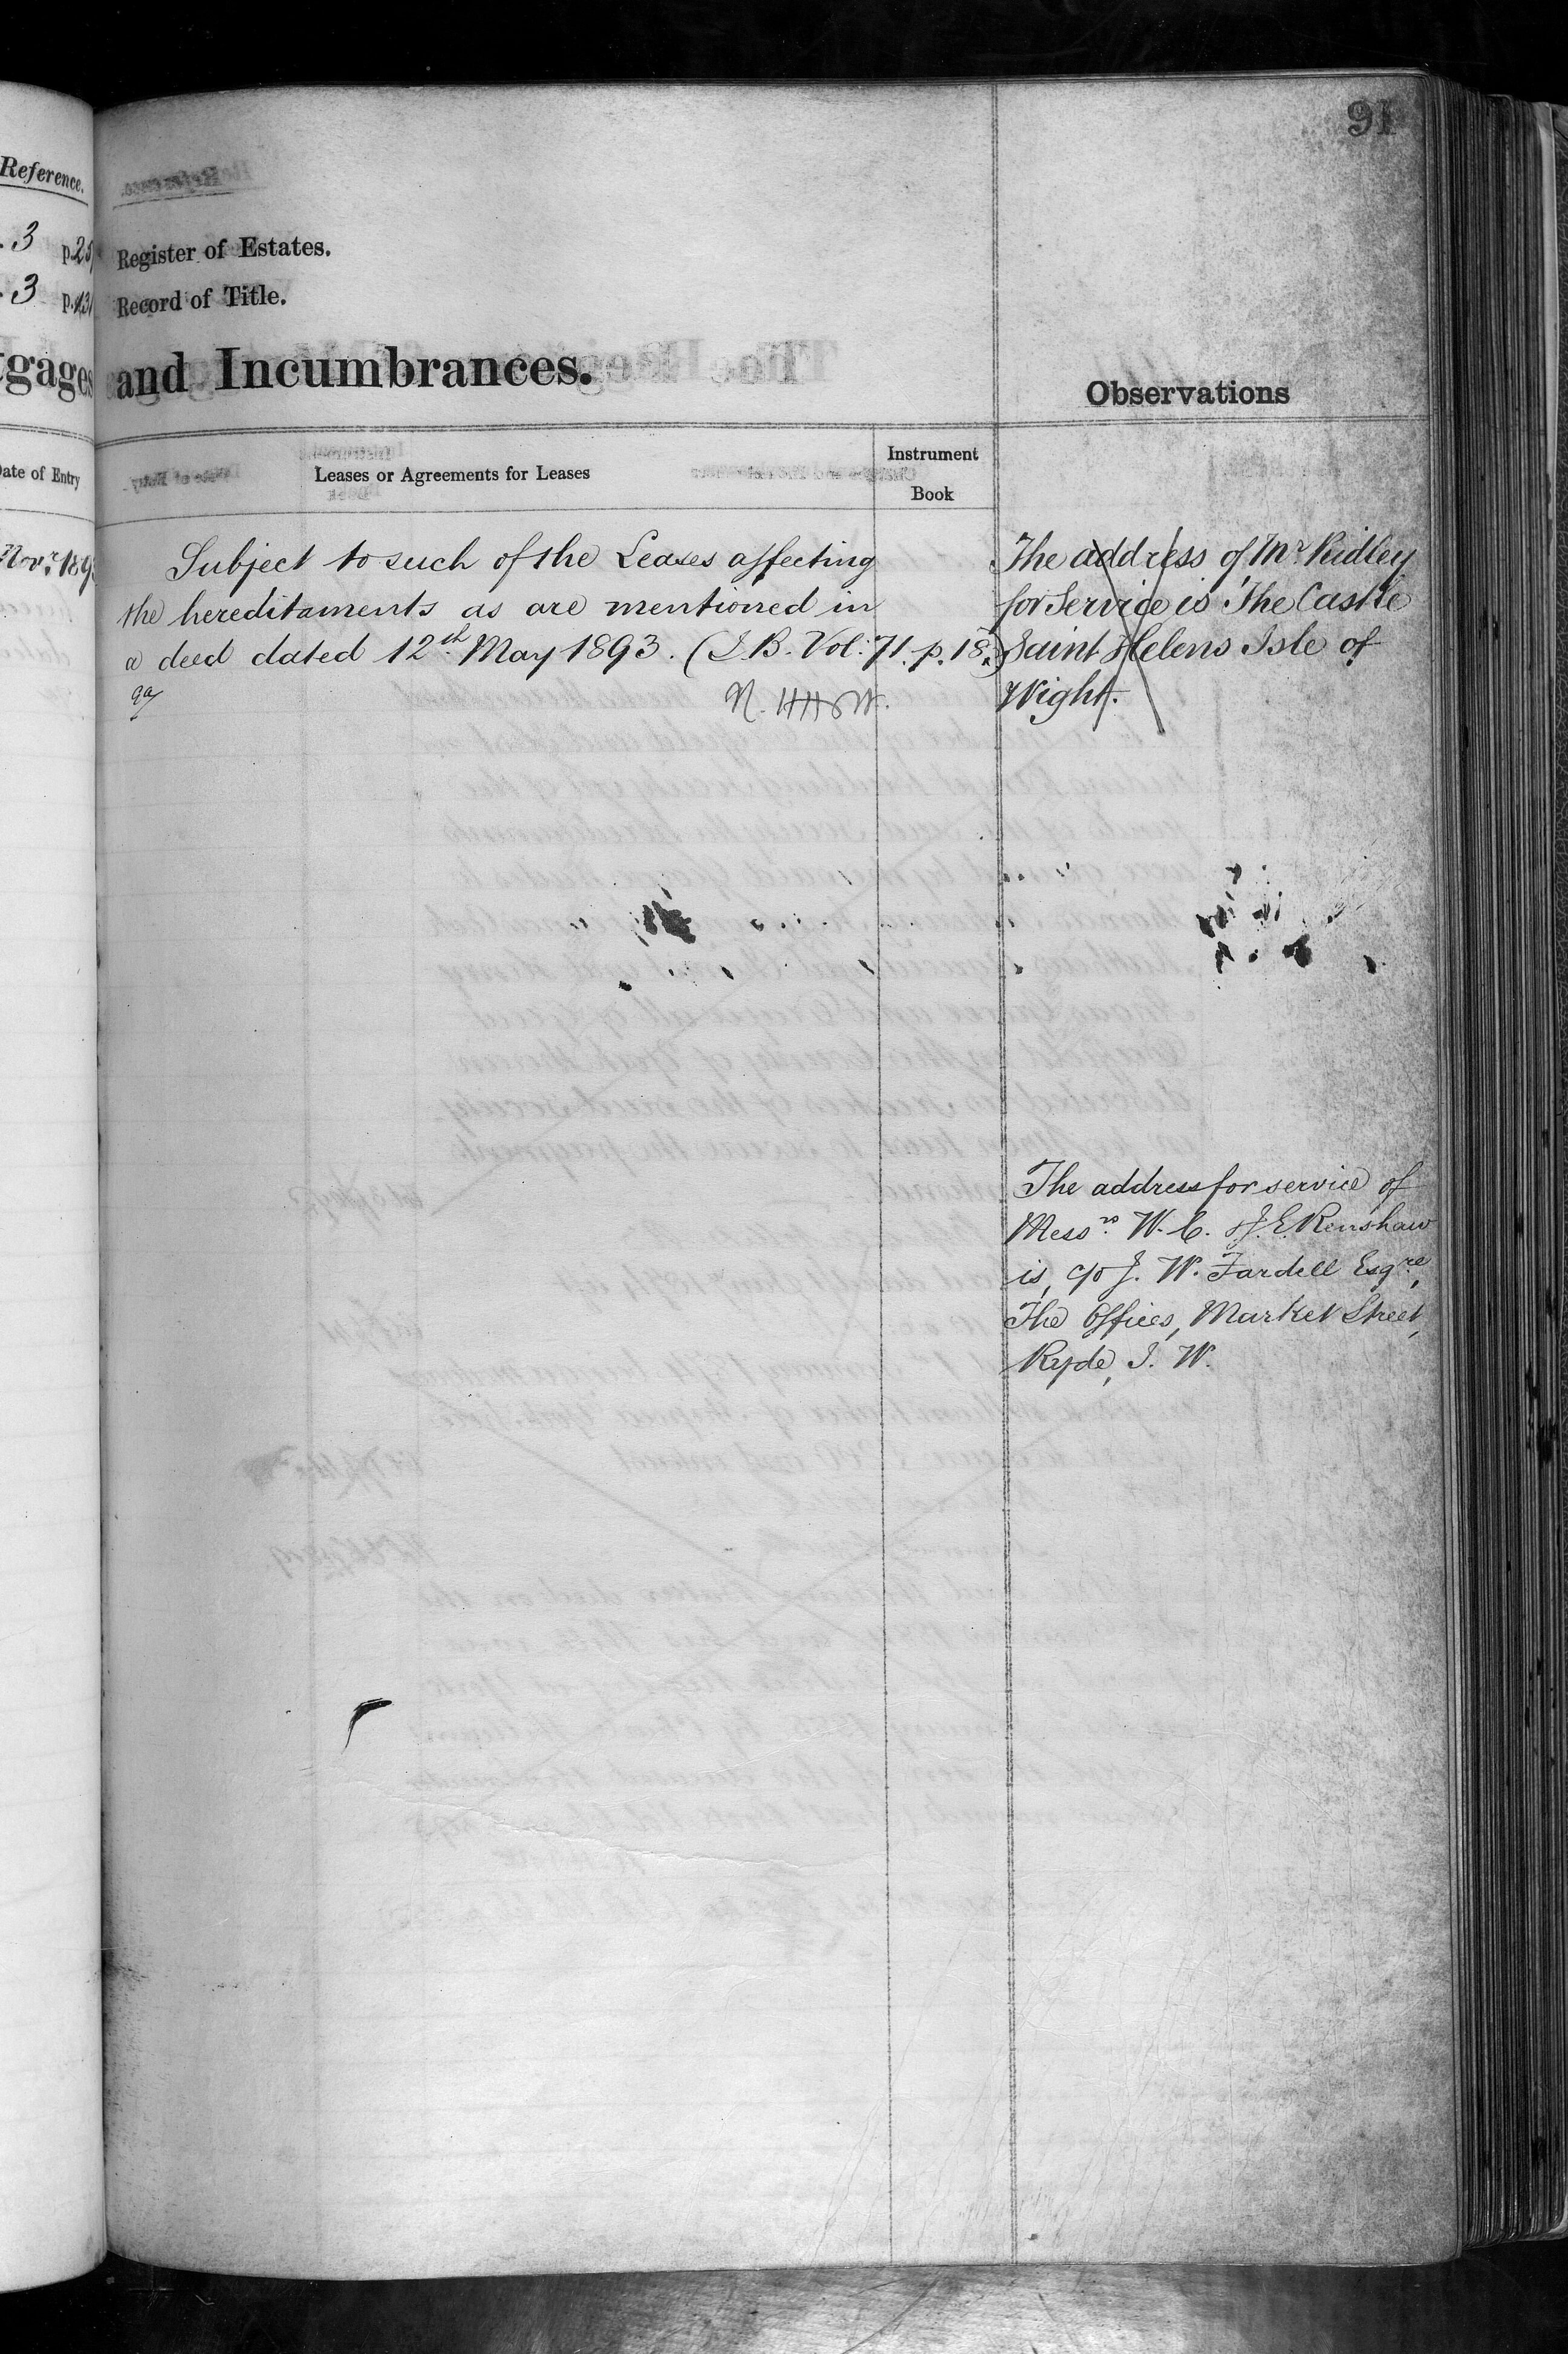 91
Reference.
3 p.
3 p.
Register of Estates.
Record of Title.
and Incumbrances.
Observations
Date of Entry
Leases or Agreements for Leases
Instrument
Book
Novr. 189
Subject to such of the Leases affecting
the hereditaments as are mentioned in
a deed dated 12th May 1893. (I.B. Vol. 71. p. 18.)
The address of Mr. Ridley
for Service is The Castle
Saint Helens Isle of
Wight.
The address for service of
Messrs. W. C. & J. E. Renshaw
is, c/o J. W. Fardell Esqre,
The Offices, Market Street,
Ryde, I. W.